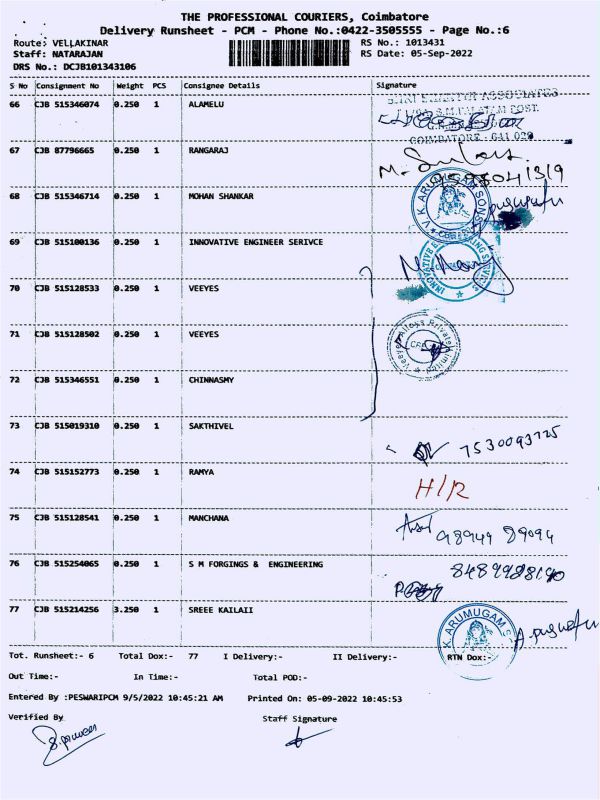 THE PROFESSIONAL COURIERS, Coimbatore
Delivery Runsheet - PCM - Phone No.:0422-3505555 - Page No.:6
Route: VELLAKINAR RS No.: 1013431
Staff: NATARAJAN RS Date: 05-Sep-2022
DRS No.: DCJB101343106
S No Consignment No Weight PCS Consignee Details Signature
66 CJB 515346074 0.250 1 ALAMELU
ASSOCIATES
POST.
COIMBATORE - 641 029
67 CJB 87796665 0.250 1 RANGARAJ
68 CJB 515346714 0.250 1 MOHAN SHANKAR
69 CJB 515100136 0.250 1 INNOVATIVE ENGINEER SERIVCE
70 CJB 515128533 0.250 1 VEEYES
71 CJB 515128502 0.250 1 VEEYES
72 CJB 515346551 0.250 1 CHINNASMY
73 CJB 515019310 0.250 1 SAKTHIVEL 7530093725
74 CJB 515152773 0.250 1 RAMYA H/R
75 CJB 515128541 0.250 1 MANCHANA 98944 89094
76 CJB 515254065 0.250 1 S M FORGINGS & ENGINEERING 8489988190
77 CJB 515214256 3.250 1 SREEE KAILAII
K. ARUMUGAM
Tot. Runsheet:- 6 Total Dox:- 77 I Delivery:- II Delivery:- RTN Dox:-
Out Time:- In Time:- Total POD:-
Entered By :PESWARIPCM 9/5/2022 10:45:21 AM Printed On: 05-09-2022 10:45:53
Verified By Staff Signature